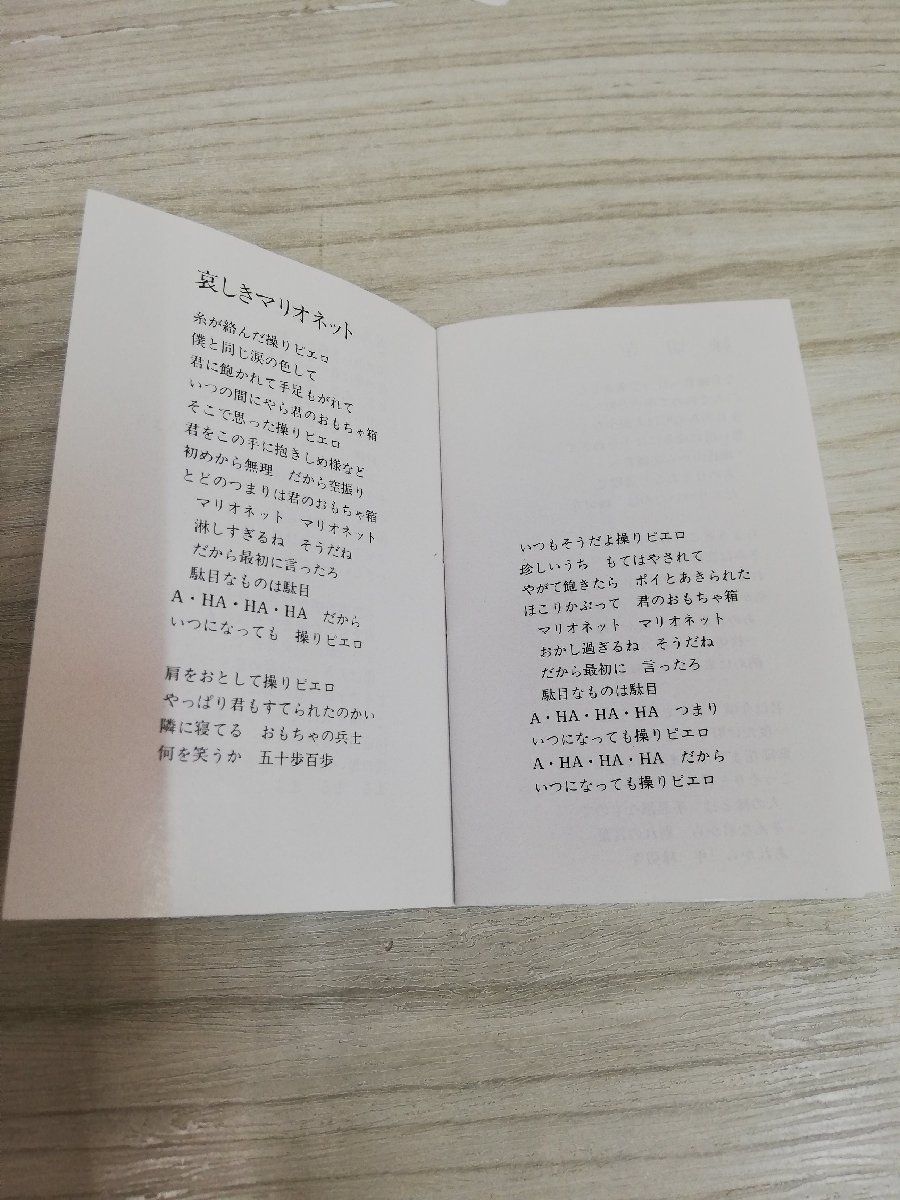 哀しきマリオネット
糸が絡んだ操りピエロ
僕と同じ涙の色して
君に飽かれて手足もがれて
いつの間にやら君のおもちゃ箱
そこで思った操りピエロ
君をこの手に抱きしめ様など
初めから無理　だから空振り
とどのつまりは君のおもちゃ箱
マリオネット　マリオネット
淋しすぎるね　そうだね
だから最初に言ったろ
駄目なものは駄目
A・HA・HA・HA　だから
いつになっても　操りピエロ
肩をおとして操りピエロ
やっぱり君もすてられたのかい
隣に寝てる　おもちゃの兵士
何を笑うか　五十歩百歩
いつもそうだよ操りピエロ
珍しいうち　もてはやされて
やがて飽きたら　ポイとあきられた
ほこりかぶって　君のおもちゃ箱
マリオネット　マリオネット
おかし過ぎるね　そうだね
だから最初に　言ったろ
駄目なものは駄目
A・HA・HA・HA　つまり
いつになっても操りピエロ
A・HA・HA・HA　だから
いつになっても操りピエロ